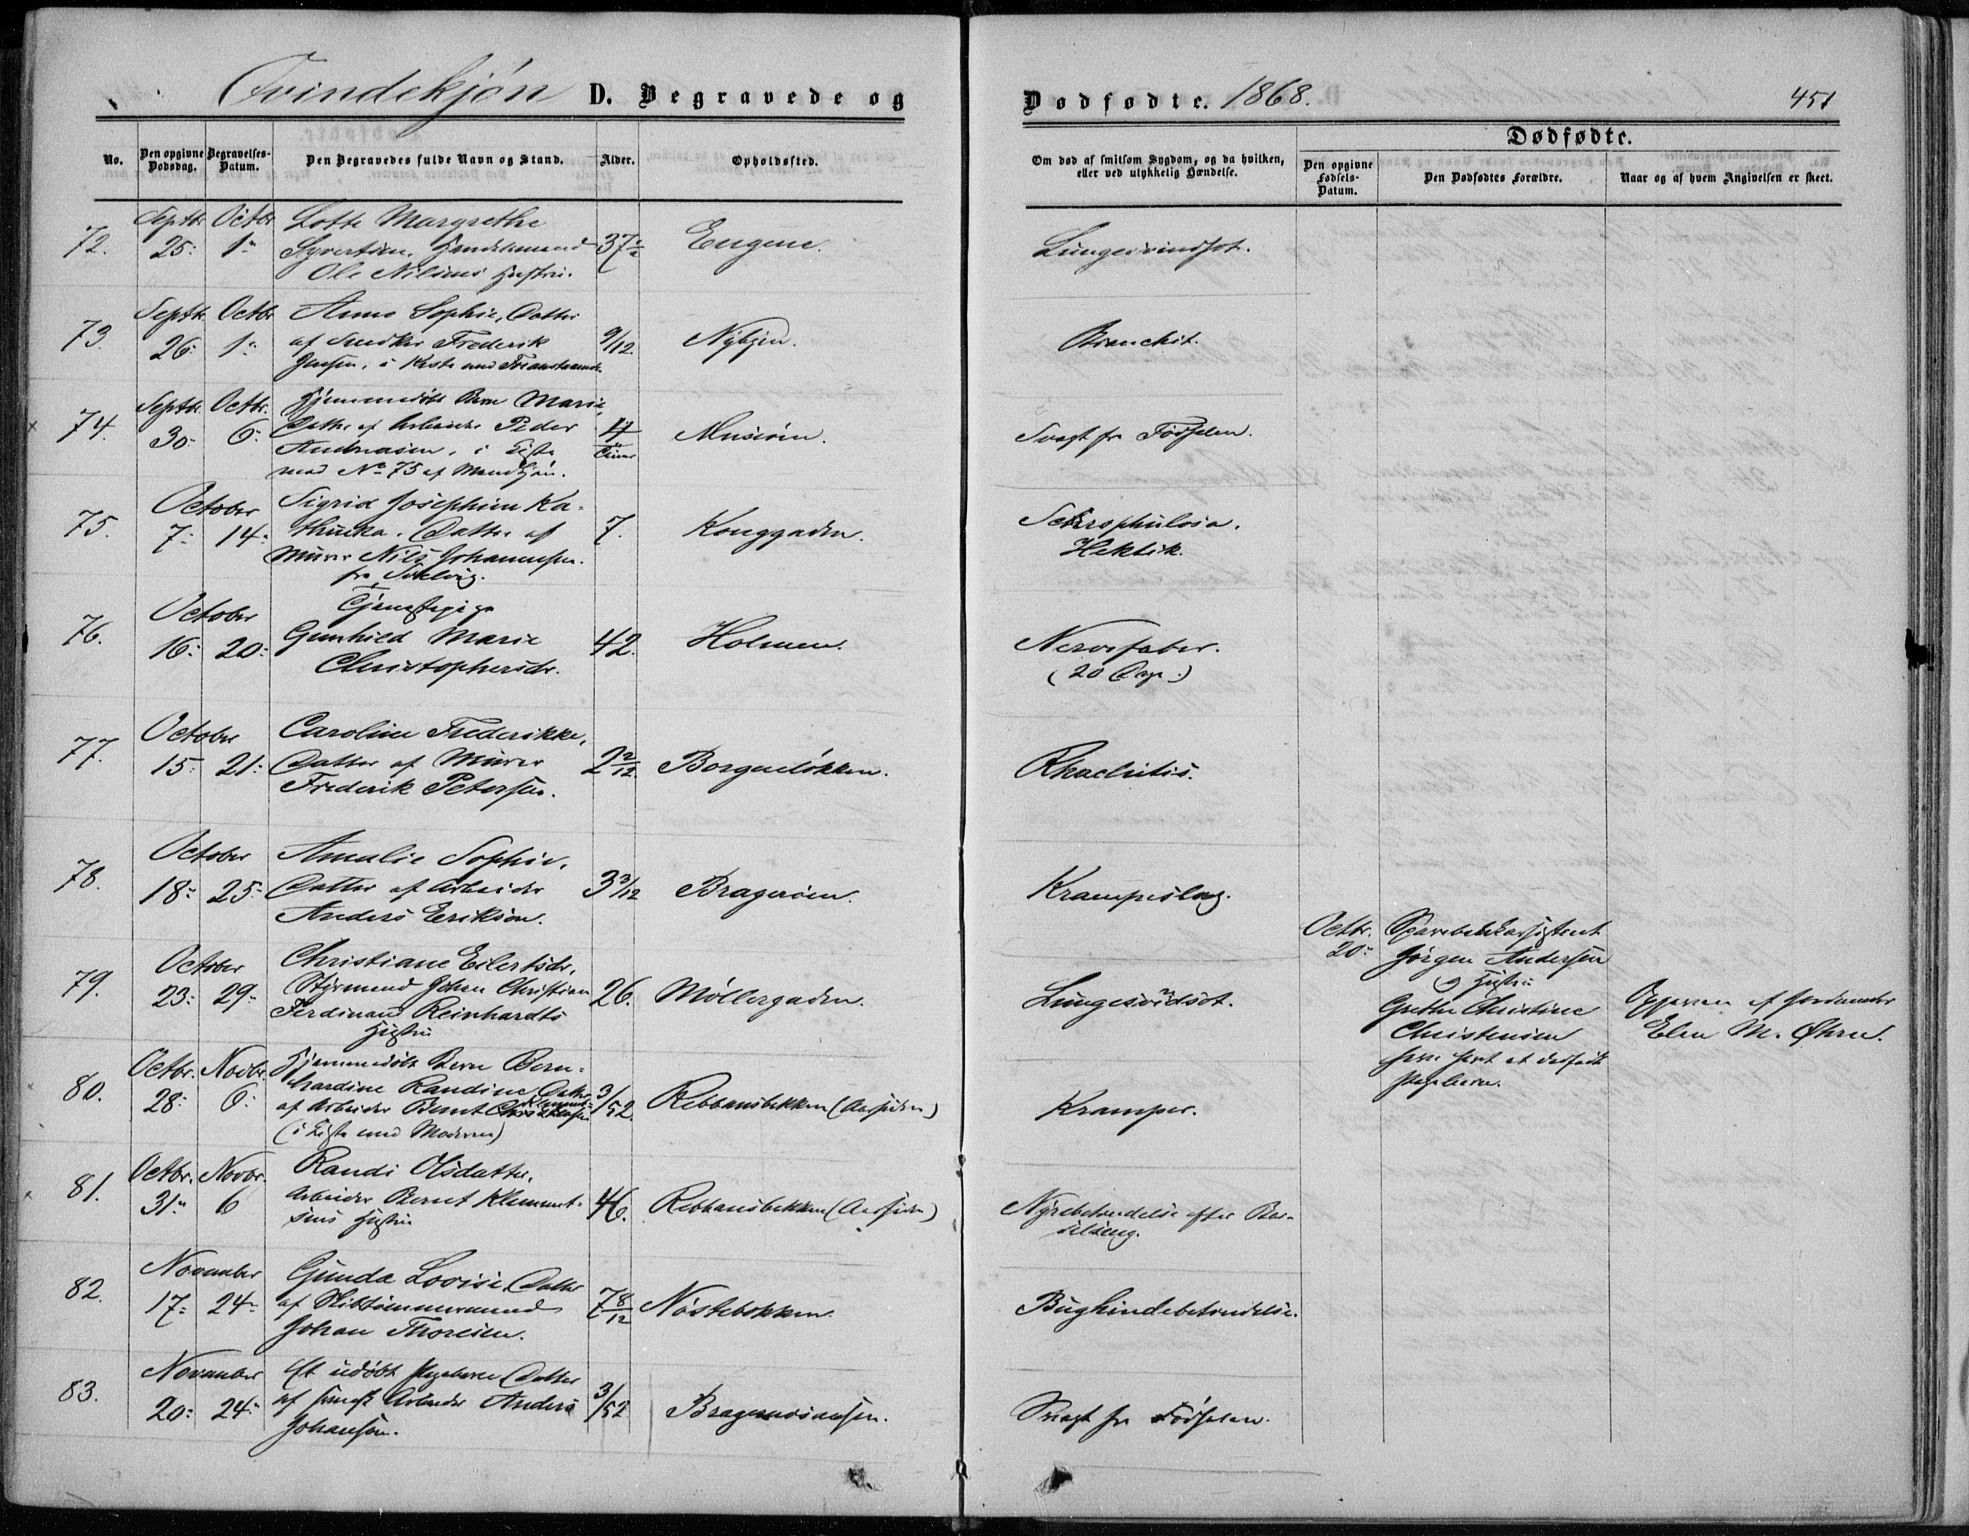 Qvindekjøn D. Begravede og
Dødfødte. 1868.
451
No.
Den opgivne Dødsdag.
Begravelses-Datum.
Den Begravedes fulde Navn og Stand.
Alder.
Opholdssted.
Om død af smitsom Sygdom, og da hvilken, eller ved ulykkelig Hændelse.
Dødfødte.
Den opgivne Fødsels-Datum.
Den Dødfødtes Forældre.
Naar og af hvem Angivelsen er skeet.
72.
Septbr. Octbr.
25: 1:
Lotte Margrethe
Syvertsen,
Ole Nilsens Hustru.
37
Engene.
Lungesvindsot.
73.
Septbr. Octbr.
26: 1:
Anne Sophie, Datter
af Snedker Frederik
Jensen, i Kiste med
9/12.
Nybyen.
Bronchit.
74.
Septbr. Octbr.
30: 6:
Hjemmedøbt Barn Marie,
Datter af Arbeider Peder
Andreasen, i Kiste
med No 75 af Mandkjøn.
4
Timer
Svagt fra Fødselen.
75.
October
7: 14:
Sigrid Josephine Ka-
thinka. Datter af
Murer Nils Johannesen.
fra
7.
Konggaden.
Schrophulosa.
Hektik.
76.
October
16: 20:
Tjenestepige
Gunhild Marie
Christophersdr.
42.
Holmen.
Nervefeber.
(20 Dage.)
77.
October
15: 21:
Caroline Frederikke,
Datter af Murer
Frederik Petersen.
2 2/12.
Borgeløkken.
Rhachitis.
78.
October
18: 25:
Amalie Sophie,
Datter af Arbeider
Anders Eriksen.
3 3/12
Bragerøen.
Krampeslag.
79.
October
23: 29:
Christiane Eilertsdr.
Styrmand Johan Christian
Ferdinand Reinhardts
Hustru
26.
Møllergaden.
Lungesvindsot.
Octbr.
20:
Sparebankassistent
Jørgen Andersen
og Hustru
Grethe Christine
Christensen
have havt et dødfødt
Pigebarn.
Opgaven af Jordemoder
Elen M. Øhrn.
80.
Octbr. Novbr.
28: 6:
Hjemmedøbt Barn Bern-
hardine Randine, Datter
af Arbeider Bernt Klementsen
(i Kiste med Moderen)
3/52.
Rebbansbakken (Aassiden)
Kramper.
81.
Octbr. Novbr.
31: 6
Randi Olsdatter,
Arbeider Bernt Klement-
sens Hustru
46.
Rebbansbakken (Aassiden)
Nyrebetændelse efter Bar-
selseng.
82.
November
17: 24:
Gunda Lovise, Datter
af Skibstømmermand
Johan Thoresen.
7 8/12
Nøstebakken.
Bughindebetændelse.
83.
November
20: 24:
Et udøbt Pigebarn, Datter
af Arbeider Anders
Johansen.
3/52
Bragernesaasen.
Svagt fra Fødselen.